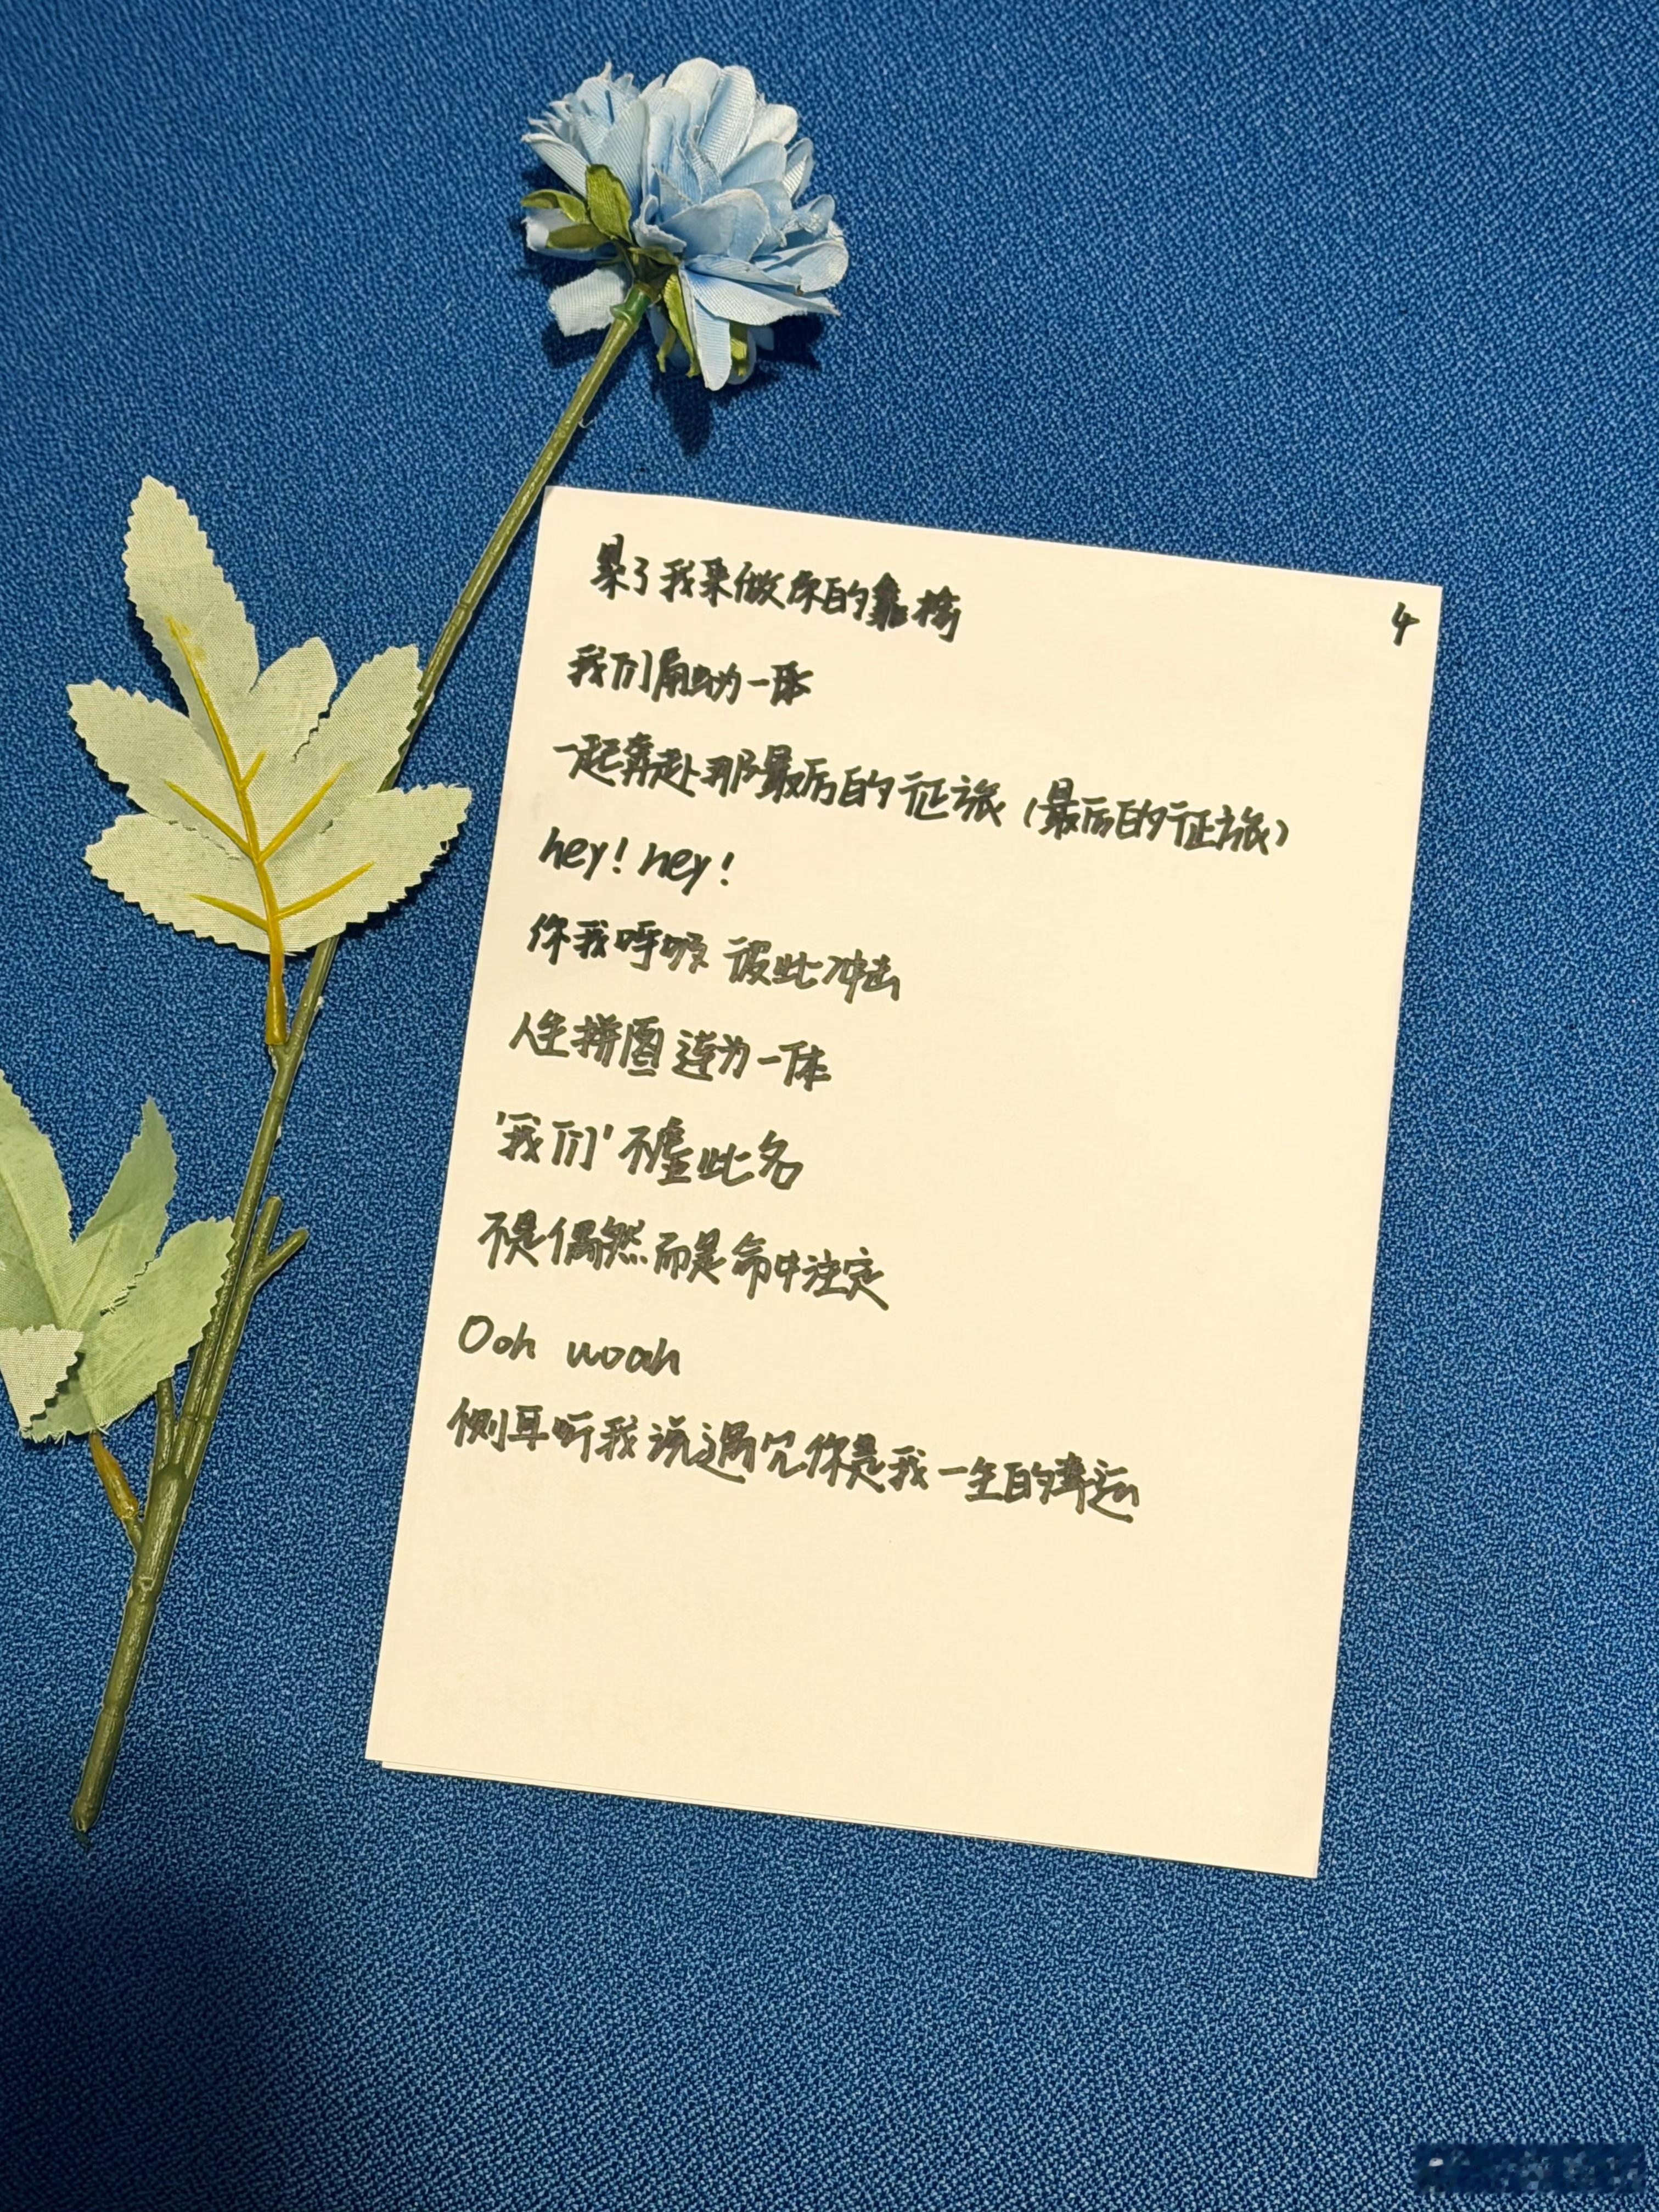 累了我来做你的靠椅
4
我们融为一体
一起奔赴那最后的征旅（最后的征旅）
hey！hey！
你我呼吸 彼此冲击
人生拼图 连为一体
'我们'不虚此名
不是偶然而是命中注定
Ooh woah
侧耳听我说遇见你是我一生的幸运